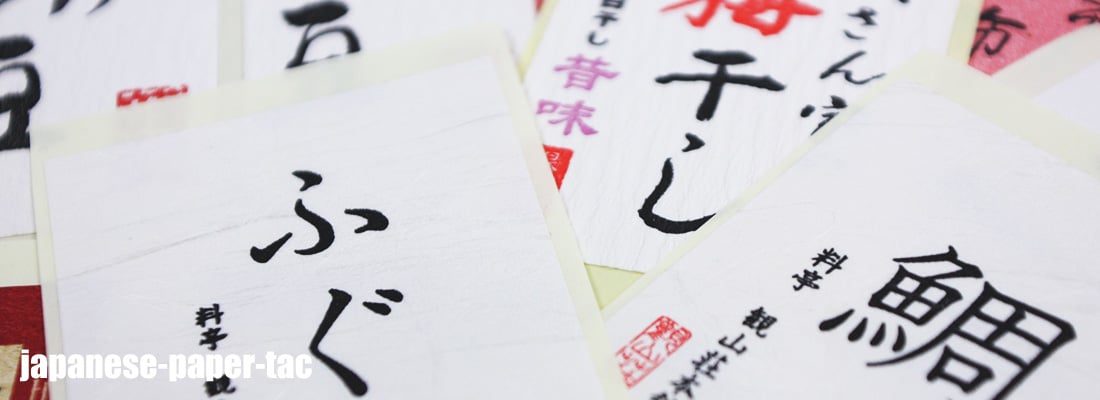 豆
豆
梅干し
昔味
日干し
さん
布
ふぐ
料亭
鯛
料亭 観山荘本
japanese-paper-tac